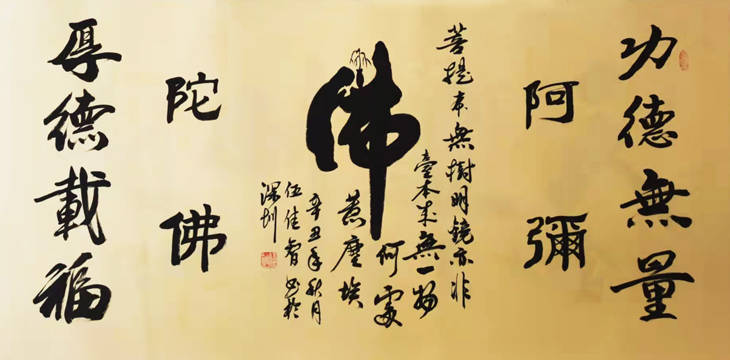 功德無量
阿彌
佛
菩提本無樹明镜亦非
臺本来無一物
何處
惹塵埃
辛丑年秋月
伍佳智书於
深圳
陀佛
厚德載福